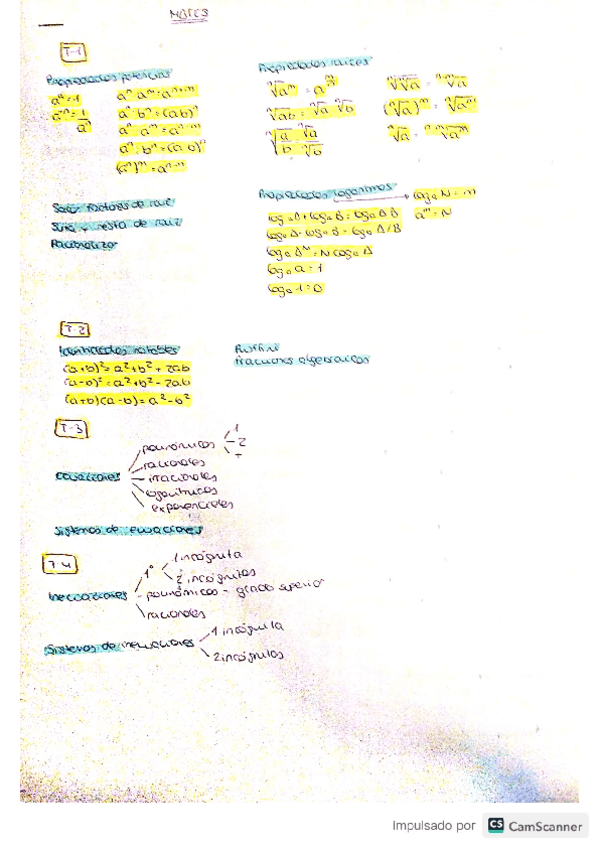 MATES
T-1
Propiedades potencias
a⁰ = 1
a⁻ⁿ = 1/aⁿ
aⁿ · aᵐ = aⁿ⁺ᵐ
aⁿ · bⁿ = (ab)ⁿ
aⁿ : aᵐ = aⁿ⁻ᵐ
(aⁿ)ᵐ = aⁿ·ᵐ
Propiedades raíces
ⁿ√ab = ⁿ√a ⁿ√b
ⁿ√a/b = ⁿ√a/ⁿ√b
(ⁿ√a)ᵐ = ⁿ√aᵐ
Sacar factores de raíz
Suma y resta de raíz
Racionalizar
Propiedades logaritmos → logₐ N = m
aᵐ = N
logₐ A + logₐ B = logₐ A·B
logₐ A - logₐ B = logₐ A/B
logₐ Aᴺ = N logₐ A
logₐ a = 1
logₐ 1 = 0
T-2
Identidades notables
(a+b)² = a² + b² + 2ab
(a-b)² = a² + b² - 2ab
(a+b)(a-b) = a² - b²
Ruffini
Fracciones algebraicas
T-3
ecuaciones
polinómicos
1
2
+
racionales
irracionales
logarítmicos
exponenciales
Sistemas de ecuaciones
T-4
Inecuaciones
1º
1 incógnita
2 incógnitas
polinómicos - grado superior
racionales
Sistemas de inecuaciones
1 incógnita
2 incógnitas
Impulsado por CS CamScanner